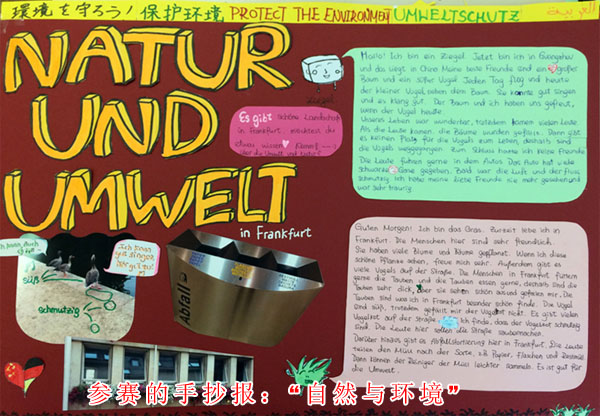 環境を守ろう! 保护环境 PROTECT THE ENVIRONMENT UMWELTSCHUTZ
NATUR
UND
UMWELT
in Frankfurt
Ziegel
Es gibt schöne Landschaft
in Frankfurt. möchten du
etwas wissen? Komm!
über die Umwelt und Natur!
Hallo! Ich bin ein Ziegel. Jetzt bin ich in Guangzhou
und das liegt in China. Meine beste Freunde sind ein großer
Baum und ein süßer Vogel. Jeden Tag flog und heute
der kleiner Vogel neben dem Baum. Sie konnte gut singen
und es klang gut. Der Baum und ich haben uns gefreut,
wenn der Vogel heute.
Unseres Leben war wunderbar, trotzdem kamen vielen Leute.
Als die Leute kamen, die Bäume wurden gefällt. Dann gibt
es keinen Platz für die Vögel zum Leben, deshalb sind
die Vögel weggegangen. Zum Schluss hatte ich keine Freunde.
Die Leute fuhren gerne in dem Autos. Das Auto hat viele
schwarze gegeben. Bald war die Luft und der Fluss
schmutzig. Ich habe meine liebe Freunde nie mehr gesehen und
war sehr traurig.
Guten Morgen! Ich bin das Gras. Zurzeit lebe ich in
Frankfurt. Die Menschen hier sind sehr freundlich.
Sie haben viele Blumen und Bäume gepflanzt. Wenn ich diese
schöne Pflanze sehen, freue mich sehr. Außerdem gibt es
viele Vögel auf der Straße. Die Menschen in Frankfurt füttern
gerne die Tauben und die Tauben essen gerne, deshalb sind die
Tauben sehr dick, aber sie sehen schön aus und gefallen mir. Die
Tauben sind was ich in Frankfurt besonder schön finde. Die Vögel
sind süß, trotzdem gefällt mir der Vogelmist nicht. Es gibt vielen
Vogelmist auf der Straße. Ich finde, dass der Vogelmist schmutzig
sind. Die Leute hier sollten die Straße saubermachen.
Darüber hinaus gibt es Abfallsortierung hier in Frankfurt. Die Leute
teilen den Müll nach der Sorte, z.B. Papier, Flaschen und Restmüll.
Dann können der Reiniger der Müll leichter sammeln. Es ist gut für
die Umwelt.
Ich kann
gut singen
süß
schmutzig
Abfall
参赛的手抄报：“自然与环境”